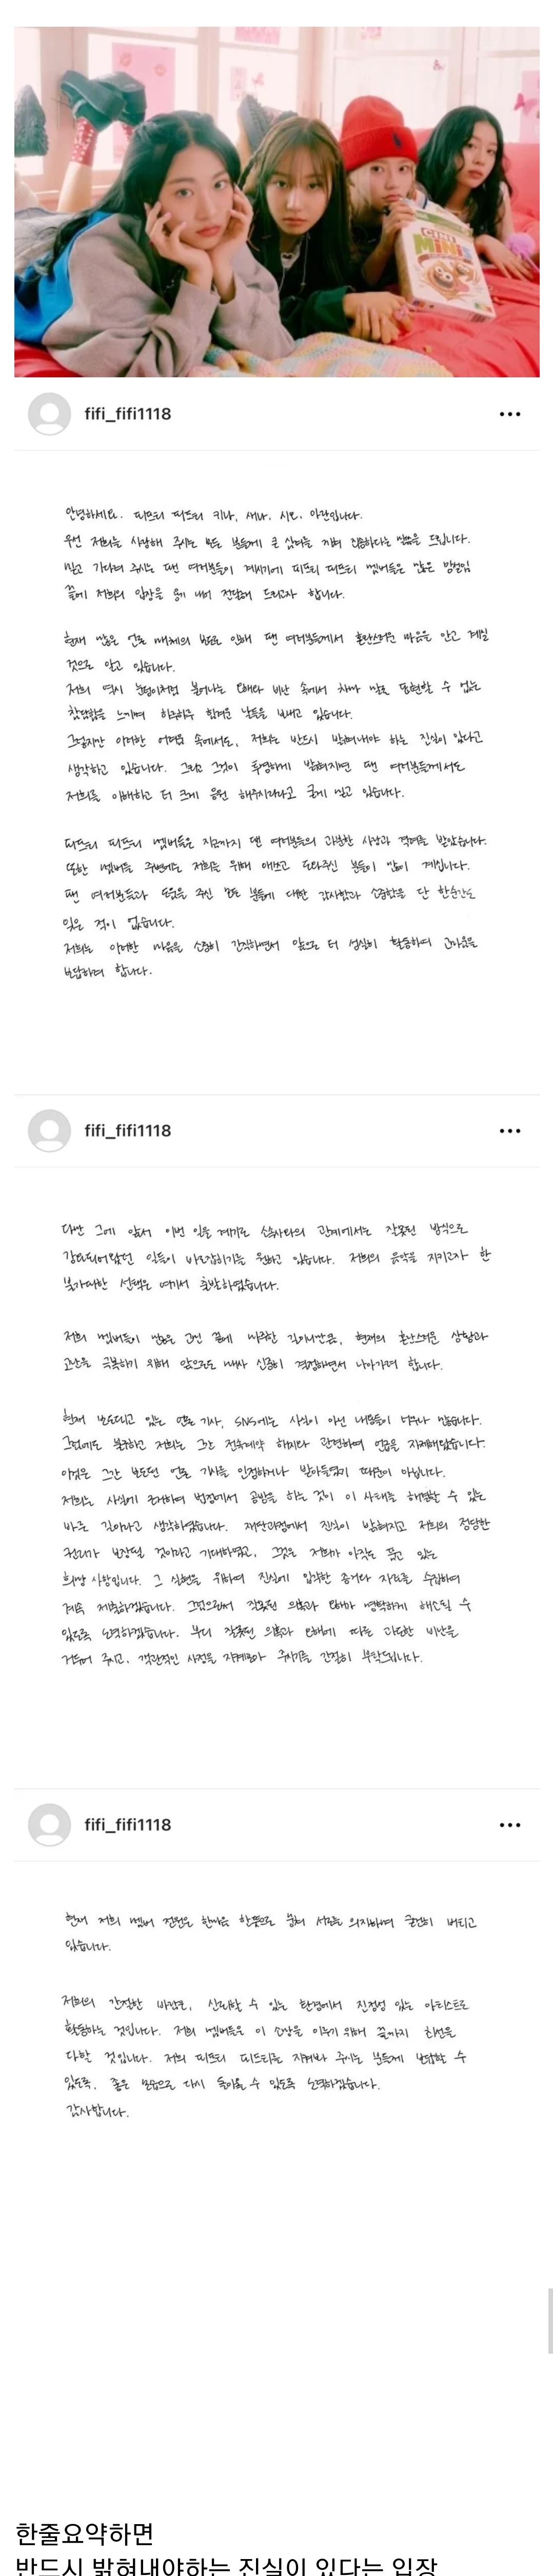 CINI
MINIS
fifi_fifi1118
안녕하세요. 피프티 피프티 키나, 새나, 시오, 아란입니다.
우선 저희를 사랑해 주시는 모든 분들께 큰 심려를 끼쳐 죄송하다는 말씀을 드립니다.
믿고 기다려 주시는 팬 여러분들이 계시기에 피프티 피프티 멤버들은 많은 망설임
끝에 저희의 입장을 용기 내어 전달해 드리고자 합니다.
현재 많은 언론 매체의 보도로 인해 팬 여러분들께서 혼란스러운 마음을 안고 계실
것으로 알고 있습니다.
저희 역시 눈덩이처럼 불어나는 오해와 비난 속에서 차마 말로 표현할 수 없는
참담함을 느끼며 하루하루 힘겨운 날들을 보내고 있습니다.
그렇지만 이러한 어려움 속에서도, 저희는 반드시 밝혀내야 하는 진실이 있다고
생각하고 있습니다. 그리고 그것이 투명하게 밝혀지면 팬 여러분들께서도
저희를 이해하고 더 크게 응원 해주시리라고 굳게 믿고 있습니다.
피프티 피프티 멤버들은 지금까지 팬 여러분들의 과분한 사랑과 격려를 받았습니다.
또한 멤버들 주변에는 저희를 위해 애쓰고 도와주신 분들이 많이 계십니다.
팬 여러분들과 도움을 주신 모든 분들에 대한 감사함과 소중함을 단 한순간도
잊은 적이 없습니다.
저희는 이러한 마음을 소중히 간직하면서 앞으로 더 성실히 활동하며 고마움을
보답하려 합니다.
fifi_fifi1118
다만 그에 앞서 이번 일을 계기로 소속사와의 관계에서는 잘못된 방식으로
강요되어왔던 일들이 바로잡히기를 원하고 있습니다. 저희의 음악을 지키고자 한
불가피한 선택은 여기서 출발하였습니다.
저희 멤버들이 많은 고민 끝에 마주한 길이니만큼, 현재의 혼란스러운 상황과
고난을 극복하기 위해 앞으로도 매사 신중히 결정하면서 나아가려 합니다.
현재 보도되고 있는 언론 기사, SNS에는 사실이 아닌 내용들이 너무나 많습니다.
그럼에도 불구하고 저희는 그간 전속계약 해지와 관련하여 언급을 자제해왔습니다.
이것은 그간 보도된 언론 기사를 인정하거나 받아들였기 때문이 아닙니다.
저희는 사실에 근거하여 법정에서 공방을 하는 것이 이 사태를 해결할 수 있는
바른 길이라고 생각하였습니다. 재판과정에서 진실이 밝혀지고 저희의 정당한
권리가 보장될 것이라고 기대하였고, 그것은 저희가 아직도 품고 있는
희망 사항입니다. 그 실현을 위하여 진실에 입각한 증거와 자료를 수집하여
계속 제출하겠습니다. 그럼으로써 잘못된 의혹과 오해가 명백하게 해소될 수
있도록 노력하겠습니다. 부디 잘못된 의혹과 오해에 따른 과도한 비난을
거두어 주시고, 객관적인 사정을 지켜보아 주시기를 간절히 부탁드립니다.
fifi_fifi1118
현재 저희 멤버 전원은 한마음 한뜻으로 뭉쳐 서로를 의지하며 굳건히 버티고
있습니다.
저희의 간절한 바람은, 신뢰할 수 있는 환경에서 진정성 있는 아티스트로
활동하는 것입니다. 저희 멤버들은 이 소망을 이루기 위해 끝까지 최선을
다할 것입니다. 저희 피프티 피프티를 지켜봐 주시는 분들께 보답할 수
있도록, 좋은 모습으로 다시 돌아올 수 있도록 노력하겠습니다.
감사합니다.
한줄요약하면
반드시 밝혀내야하는 진실이 있다는 입장